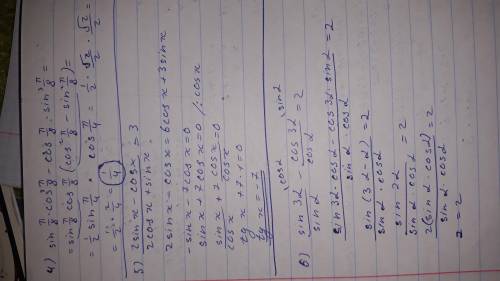 4) sin π/8 · cos³ π/8 − cos π/8 · sin³ π/8 =
= sin π/8 cos π/8 (cos² π/8 − sin² π/8) =
= 1/2 sin π/4 · cos π/4 = 1/2 · √2/2 · √2/2 =
= 1/2 · 2/4 = 1/4
5) (2sinx − cosx)/(2cosx + sinx) = 3
2sinx − cosx = 6cosx + 3sinx
−sinx − 7cosx = 0
sinx + 7cosx = 0 /: cosx
(sinx + 7cosx)/cosx = 0/cosx
tg x + 7·1 = 0
tg x = −7
6) sin3α/sinα − cos3α/cosα = 2
(sin3α · cosα − cos3α · sinα)/(sinα cosα) = 2
sin(3α − α)/(sinα · cosα) = 2
sin2α/(sinα cosα) = 2
2(sinα · cosα)/(sinα · cosα) = 2
2 = 2